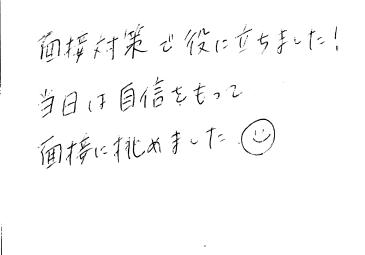 面接対策で役に立ちました!
当日は自信をもって
面接に挑めました